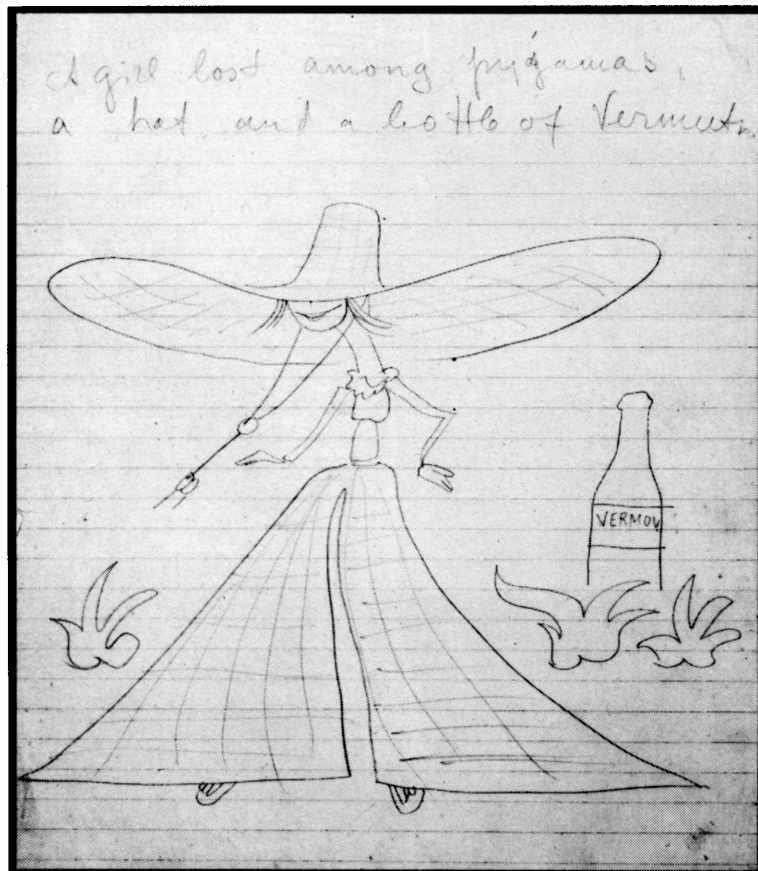 A girl lost among pyjamas,
a hat and a bottle of Vermuth.
VERMOU